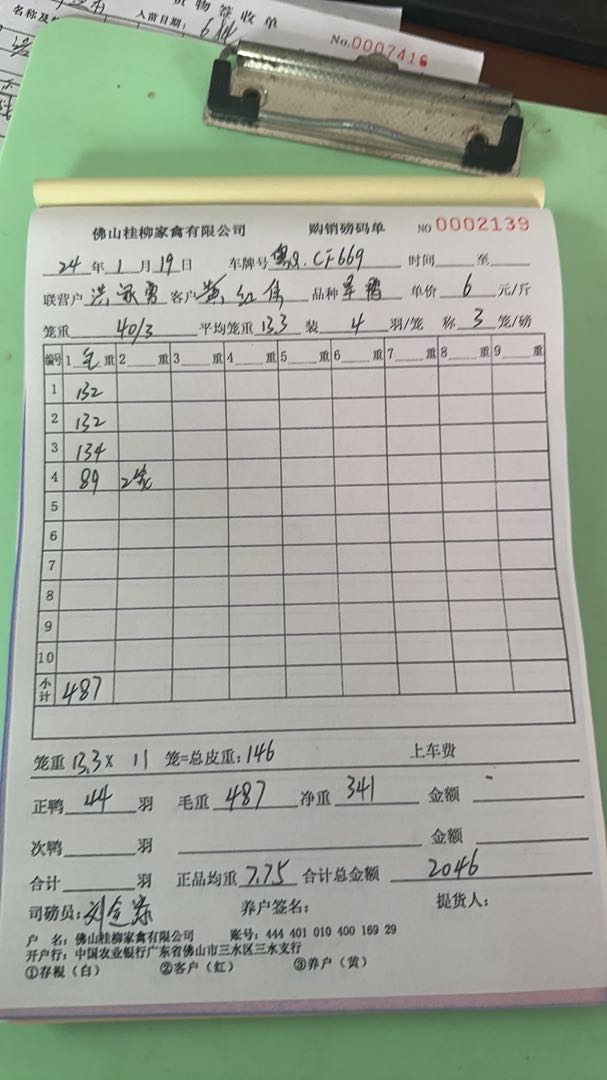 货物签收单
入苗日期：
No.0007416
佛山桂柳家禽有限公司 购销磅码单 NO 0002139
24年1月19日 车牌号 粤Q.CF669 时间 至
联营户 洪家勇 客户 红 品种 单价 6 元/斤
笼重 40/3 平均笼重 13.3 装 4 羽/笼 称 3 笼/磅
编号 1 毛 重 2 重 3 重 4 重 5 重 6 重 7 重 8 重 9 重
1 132
2 132
3 134
4 89 2笼
5
6
7
8
9
10
小计 487
笼重 13.3 x 11 笼=总皮重：146 上车费
正鸭 44 羽 毛重 487 净重 341 金额 -
次鸭 羽 金额
合计 羽 正品均重 7.75 合计总金额 2046
司磅员：刘 养户签名： 提货人：
户 名：佛山桂柳家禽有限公司 账号：444 401 010 400 169 29
开户行：中国农业银行广东省佛山市三水区三水支行
①存根（白） ②客户（红） ③养户（黄）